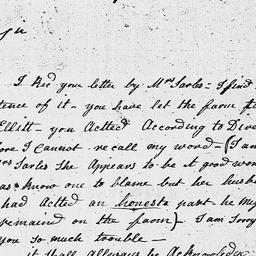 Sir
I Rec'd your letter by Mrs Sarles = I find
tence of it - you have let the farm to
Ellitt - you Actted According to Dire
ore I Cannot re call my word - (I am
Mrs Sarles She Appears to be A good wom
as I know one to blame but her husb
had Actted an honesta part he mig
remaind on the farm) - I am Sorry
you So much trouble -
it Shall Allways be Acknowledg